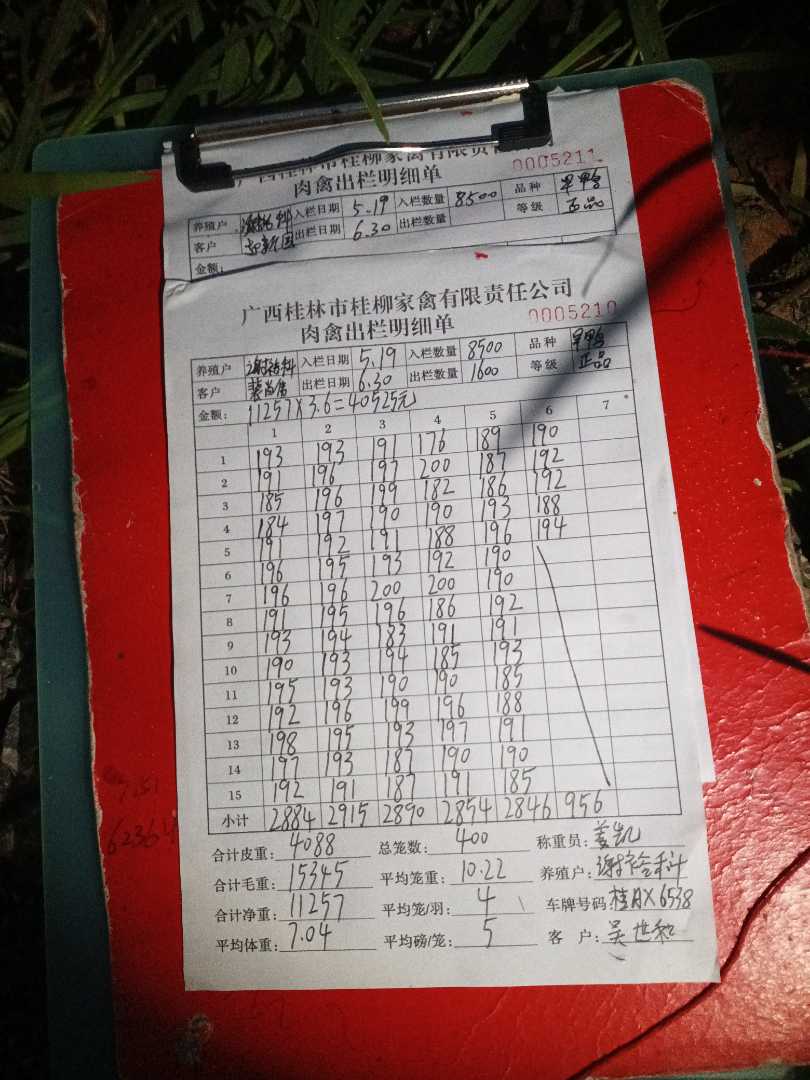 广西桂林市桂柳家禽有限责任公司
肉禽出栏明细单 0005211
养殖户 入栏日期 5.19 入栏数量 8500 品种 旱鸭
客户 出栏日期 6.30 出栏数量 等级 正品
金额:
广西桂林市桂柳家禽有限责任公司
肉禽出栏明细单 0005210
养殖户 入栏日期 5.19 入栏数量 8500 品种 旱鸭
客户 出栏日期 6.30 出栏数量 1600 等级 正品
金额: 11257×3.6=40525元
1 2 3 4 5 6 7
1 193 193 191 176 189 190
2 191 196 197 200 187 192
3 185 196 199 182 186 192
4 184 197 190 190 193 188
5 191 192 191 188 196 194
6 196 195 193 192 190
7 196 196 200 200 190
8 191 195 196 186 192
9 193 194 183 191 191
10 190 193 194 185 193
11 195 193 190 190 185
12 192 196 199 196 188
13 198 195 193 197 191
14 197 193 187 190 190
15 192 191 187 191 185
小计 2884 2915 2890 2854 2846 956
合计皮重: 4088 总笼数: 400 称重员: 姜凯
合计毛重: 15345 平均笼重: 10.22 养殖户:
合计净重: 11257 平均笼/羽: 4 车牌号码 桂AX6538
平均体重: 7.04 平均磅/笼: 5 客 户: 吴世和